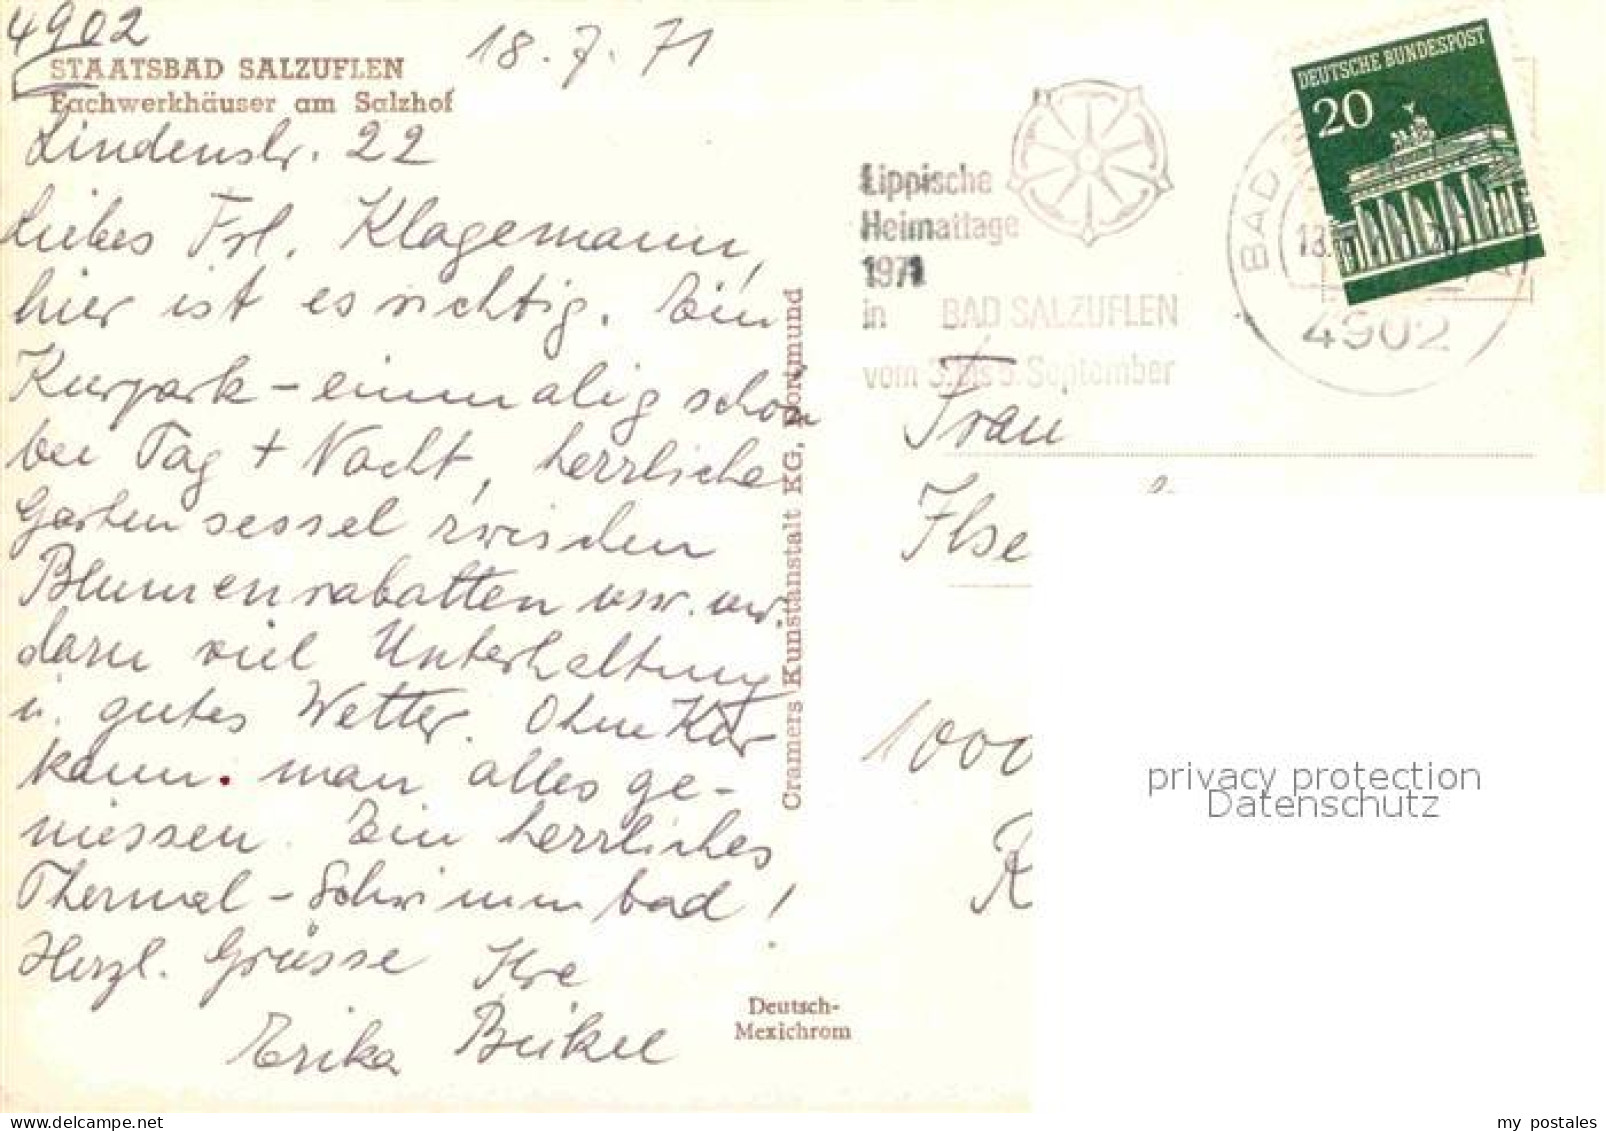 4902
18.7.71
STAATSBAD SALZUFLEN
Fachwerkhäuser am Salzhof
Lindenstr. 22
Liebes Frl. Klagemann,
hier ist es richtig. Ein
Kurpark - einmalig schön
bei Tag + Nacht, herrliche
Gartensessel zwischen
Blumenrabatten usw. usw.
dazu viel Unterhaltung
u. gutes Wetter. Ohne Kur
kann man alles ge-
niessen. Ein herrliches
Thermal-Schwimmbad!
Herzl. Grüsse Ihre
Erika
Cramers Kunstanstalt KG, Dortmund
Deutsch-
Mexichrom
Lippische
Heimattage
1971
in BAD SALZUFLEN
vom 3. bis 5. September
DEUTSCHE BUNDESPOST
20
BAD
18.
4902
Frau
Ilse
1000
privacy protection
Datenschutz
my postales